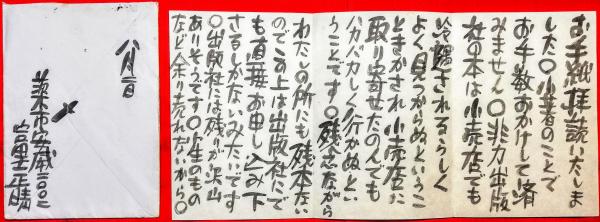 お手紙拝読いたしま
した〇小著のことで
お手数おかけして済
みません〇非力出版
社の本は小売店でも
冷遇されるらしく
よく見つからぬというこ
ときかされ小売店に
取り寄せたのんでも
ハカバカしく行かぬとい
うことです〇残念ながら
わたしの所にも残本ない
のでこの上は出版社にで
も直接お申し込み下
さるしかないみたいです
〇出版社には残りが沢山
ありそうです〇小生のもの
など余り売れないから〇
八月
茨木市安威
富士正晴